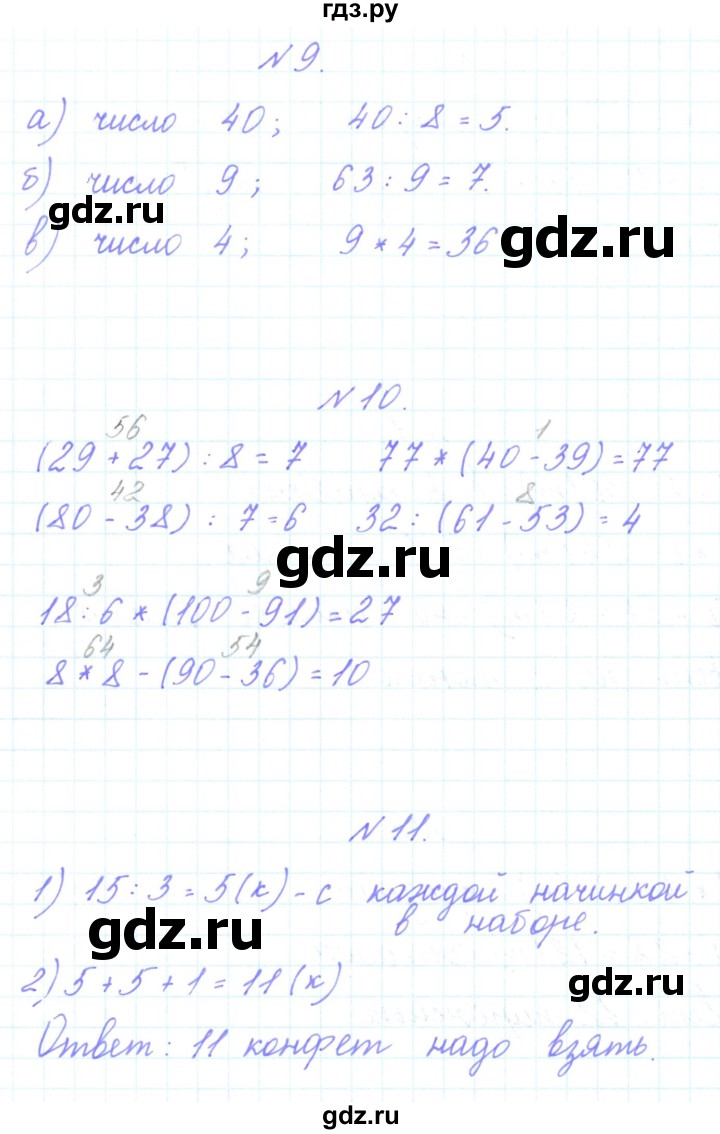 гдз.ру
№ 9.
а) число 40; 40 : 8 = 5.
б) число 9; 63 : 9 = 7.
gdz.ru
в) число 4; 9 * 4 = 36
gdz.ru
№ 10.
56 1
(29 + 27) : 8 = 7 77 * (40 - 39) = 77
42 8
(80 - 38) : 7 = 6 32 : (61 - 53) = 4
gdz.ru
3 9
18 : 6 * (100 - 91) = 27
64 54
8 * 8 - (90 - 36) = 10
№ 11.
1) 15 : 3 = 5 (к) - с каждой начинкой
в наборе.
gdz.ru
2) 5 + 5 + 1 = 11 (к)
gdz.ru
Ответ: 11 конфет надо взять.
gdz.ru